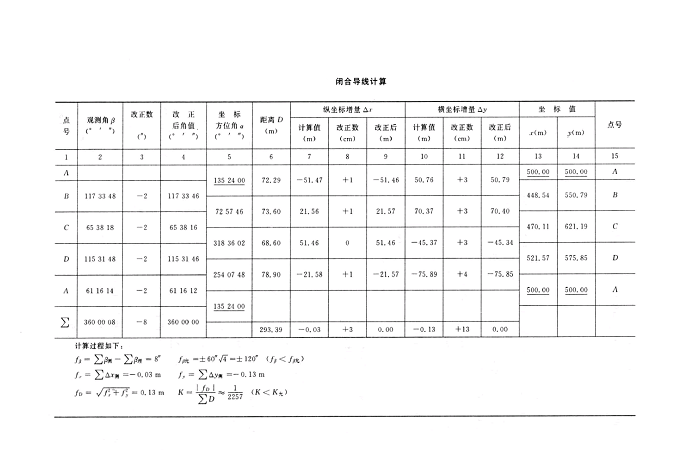 闭合导线计算
点号 观测角 β (° ′ ″) 改正数 (″) 改 正 后角值 (° ′ ″) 坐 标 方位角 α (° ′ ″) 距离 D (m) 纵坐标增量 Δx 横坐标增量 Δy 坐 标 值 点号
计算值 (m) 改正数 (cm) 改正后 (m) 计算值 (m) 改正数 (cm) 改正后 (m) x(m) y(m)
1 2 3 4 5 6 7 8 9 10 11 12 13 14 15
A 500.00 500.00 A
135 24 00 72.29 −51.47 +1 −51.46 50.76 +3 50.79
B 117 33 48 −2 117 33 46 448.54 550.79 B
72 57 46 73.60 21.56 +1 21.57 70.37 +3 70.40
C 65 38 18 −2 65 38 16 470.11 621.19 C
318 36 02 68.60 51.46 0 51.46 −45.37 +3 −45.34
D 115 31 48 −2 115 31 46 521.57 575.85 D
254 07 48 78.90 −21.58 +1 −21.57 −75.89 +4 −75.85
A 61 16 14 −2 61 16 12 500.00 500.00 A
135 24 00
∑ 360 00 08 −8 360 00 00
293.39 −0.03 +3 0.00 −0.13 +13 0.00
计算过程如下:
fβ = ∑β测 − ∑β理 = 8″ fβ允 = ±60″√4 = ±120″ (fβ < fβ允)
fx = ∑Δx测 = −0.03 m fy = ∑Δy测 = −0.13 m
fD = √(fx² + fy²) = 0.13 m K = |fD| / ∑D ≈ 1/2257 (K < K允)